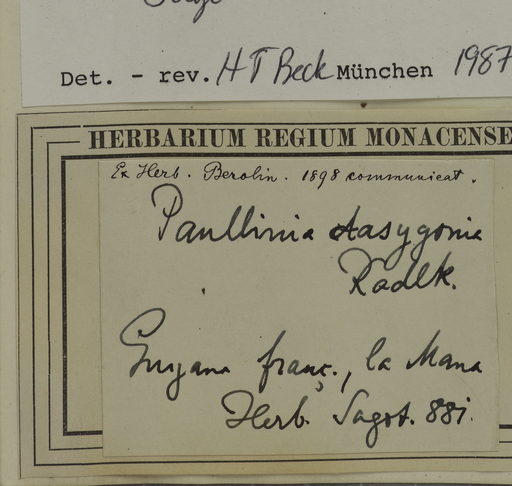 Det. - rev. H T Beck München 1987
HERBARIUM REGIUM MONACENSE
Ex Herb. Berolin. 1898 communicat.
Paullinia dasygonia
Radlk.
Guyana franç., la Mana
Herb. Sagot. 881.